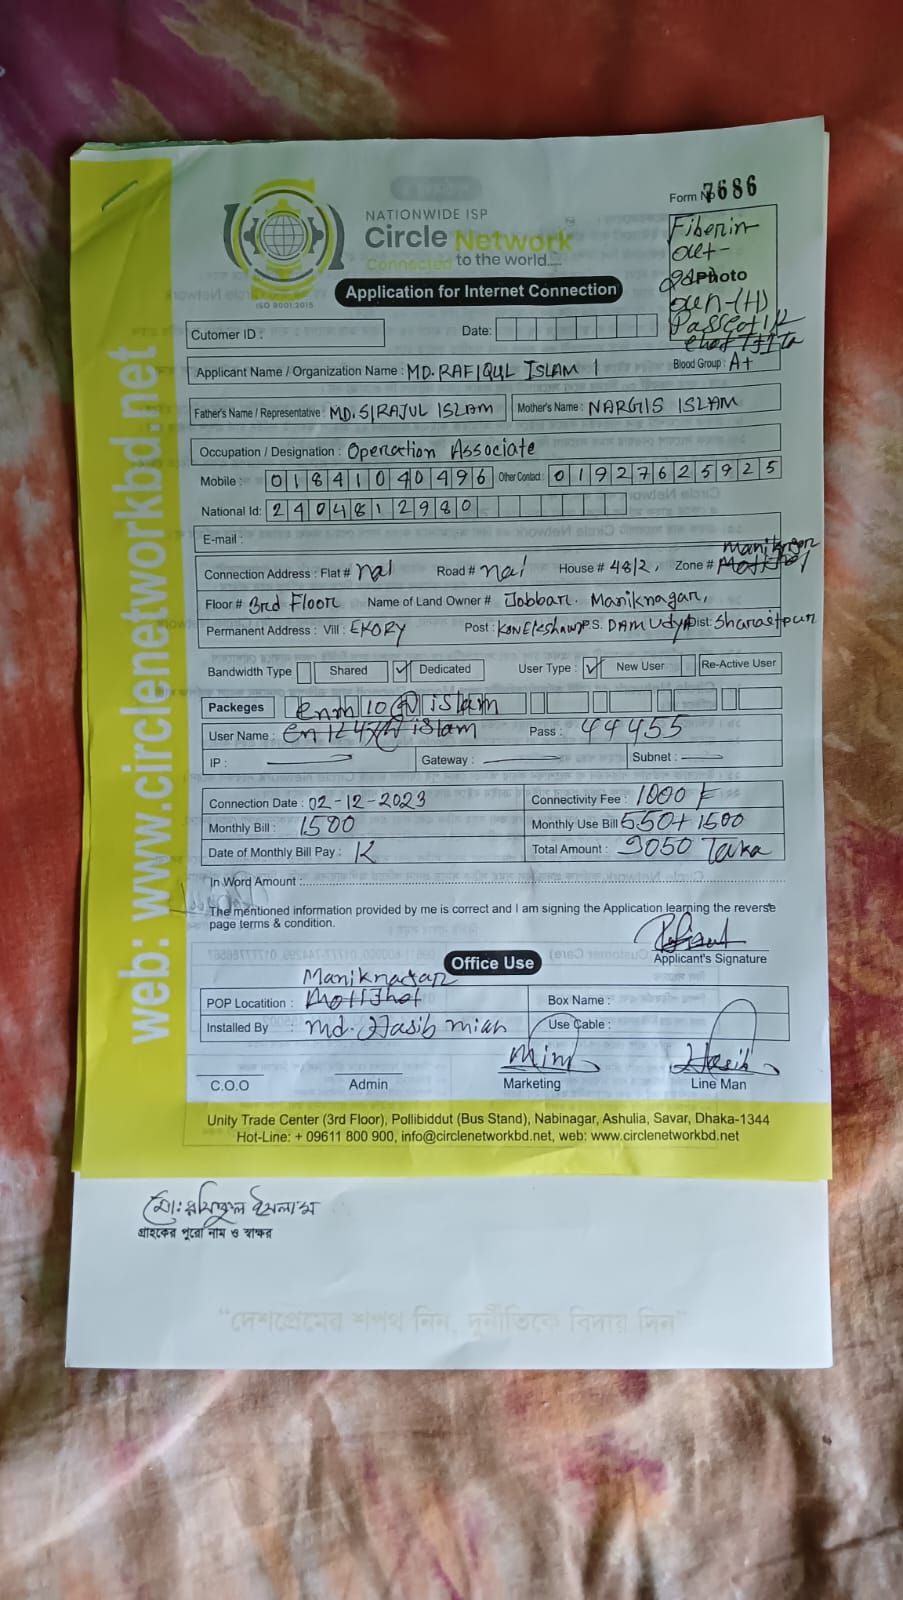 Form No 7686
NATIONWIDE ISP
Circle Network
Connected to the world....
ISO 9001:2015
Application for Internet Connection
Photo
Cutomer ID :
Date:
Applicant Name / Organization Name : MD. RAFIQUL ISLAM Blood Group : A+
Father's Name / Representative : MD. SIRAJUL ISLAM Mother's Name : NARGIS ISLAM
Occupation / Designation : Operation Associate
Mobile : 01841040496 Other Contact : 01927625925
National Id: 2404812980
E-mail :
Connection Address : Flat # nai Road # nai House # 48/2, Zone # Maniknagar
Floor # 3rd Floor Name of Land Owner # Jobbar. Maniknagar,
Permanent Address : Vill : EKORY Post : P.S. DAMUDYA Dist: Shariatpur
Bandwidth Type Shared Dedicated User Type : New User Re-Active User
Packeges enm 10 @ islam
User Name : islam Pass : 44455
IP : Gateway : Subnet :
Connection Date : 02-12-2023 Connectivity Fee : 1000
Monthly Bill : 1500 Monthly Use Bill 550+1500
Date of Monthly Bill Pay : Total Amount : 3050 Taka
In Word Amount :
The mentioned information provided by me is correct and I am signing the Application learning the reverse
page terms & condition.
Applicant's Signature
Office Use
Maniknagar
POP Locatition : Box Name :
Installed By : Md. Hasib miah Use Cable :
Mim Hasib
C.O.O Admin Marketing Line Man
Unity Trade Center (3rd Floor), Pollibiddut (Bus Stand), Nabinagar, Ashulia, Savar, Dhaka-1344
Hot-Line: + 09611 800 900, info@circlenetworkbd.net, web: www.circlenetworkbd.net
web: www.circlenetworkbd.net
মো: রফিকুল ইসলাম
গ্রাহকের পুরো নাম ও স্বাক্ষর
"দেশপ্রেমের শপথ নিন, দুর্নীতিকে বিদায় দিন"